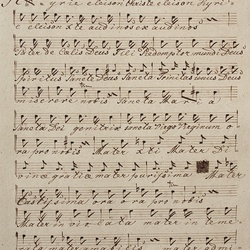 Kyrie eleison Christe eleison Kyri
e eleison xte audi nos ex audi nos
Pater de Coelis Deus Fili Redemptor mundi Deus
Spiritus Sancte Deus Sancta Trinitas unus Deus
miserere nobis Sancta Maria
Sancta Dei genitrix sancta Virgo Virginum o
ra pro nobis Mater Xti Mater Di
vinae gratiae mater purissima Mater
Castissima ora ora pro nobis
Mater inviolata mater inteme
rata mater amabilis mater